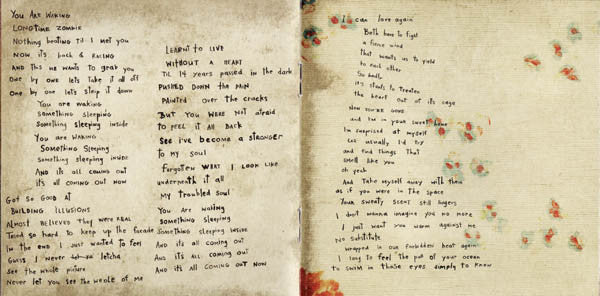 You ARE WAKING
LONGTIME ZOMBIE
NOTHING beating Til I met you
NOW it's back & RACING
AND this HE WANTS to grab you
One by one lets take it all off
ONE by one let's strip it down
You are waking
something SLEEPING
Something sleeping inside
You are WAKING
Something Sleeping
something sleeping inside
And it's all coming out
it's all coming out now
Got so GOOD at
BUILDING ILLUSIONS
ALMOST BELIEVED they WERE REAL
Tried so hard to keep up the facade
IN the end I Just wanted to feel
Guess I never letcha
See the whole picture
NEVER let you see the whole of me
LEARNT to LIVE
WITHOUT A HEART
Til 14 years passed in the dark
PUSHED DOWN the PAIN
PAINTED over the cracks
BUT YOU WERE NOT afraid
to PEEL it All BACK
SEE i've become a STRONGER
to my soul
forgotten WHAT I LOOK LIKE
underneath it all
My troubled SOUL
You ARE waking
something SLEEPING
Something sleeping inside
And it's all coming out
it's all coming out
And it's ALL coming OUT NOW
I can love again
Both here to fight
a fierce wind
that wants us to yield
to each other
So badly
it's starts to
the heart out of its cage
Now you're gone
and I'm in your sweat
I'm surprised at myself
Cos usually I'd try
and find things that
smell like you
oh yeah
And take myself away with them
as if you were in the space
Your sweaty scent still lingers
I don't wanna imagine you no more
I just want you warm against me
No substitute
wrapped in our forbidden heat again
I long to feel the pull of your ocean
to swim in those eyes simply to know